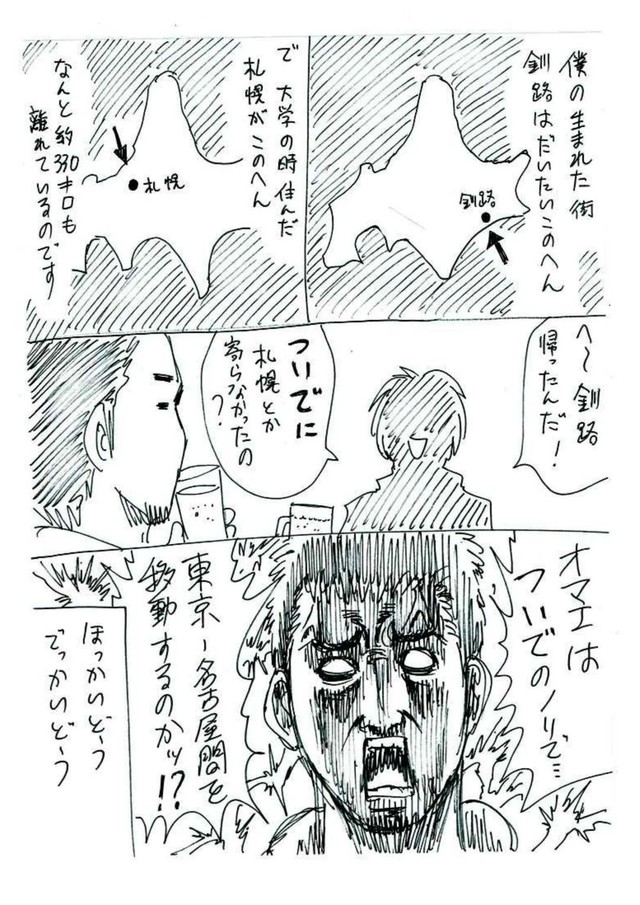 僕の生まれた街
釧路はだいたいこのへん
釧路
で大学の時住んだ
札幌がこのへん
札幌
なんと約330キロも
離れているのです
へ〜釧路
帰ったんだ!
ついでに
札幌とか
寄らなかったの
?
オマエは
ついでのノリで…
東京ー名古屋間を
移動するのかッ!?
ほっかいどぅ
でっかいどぅ